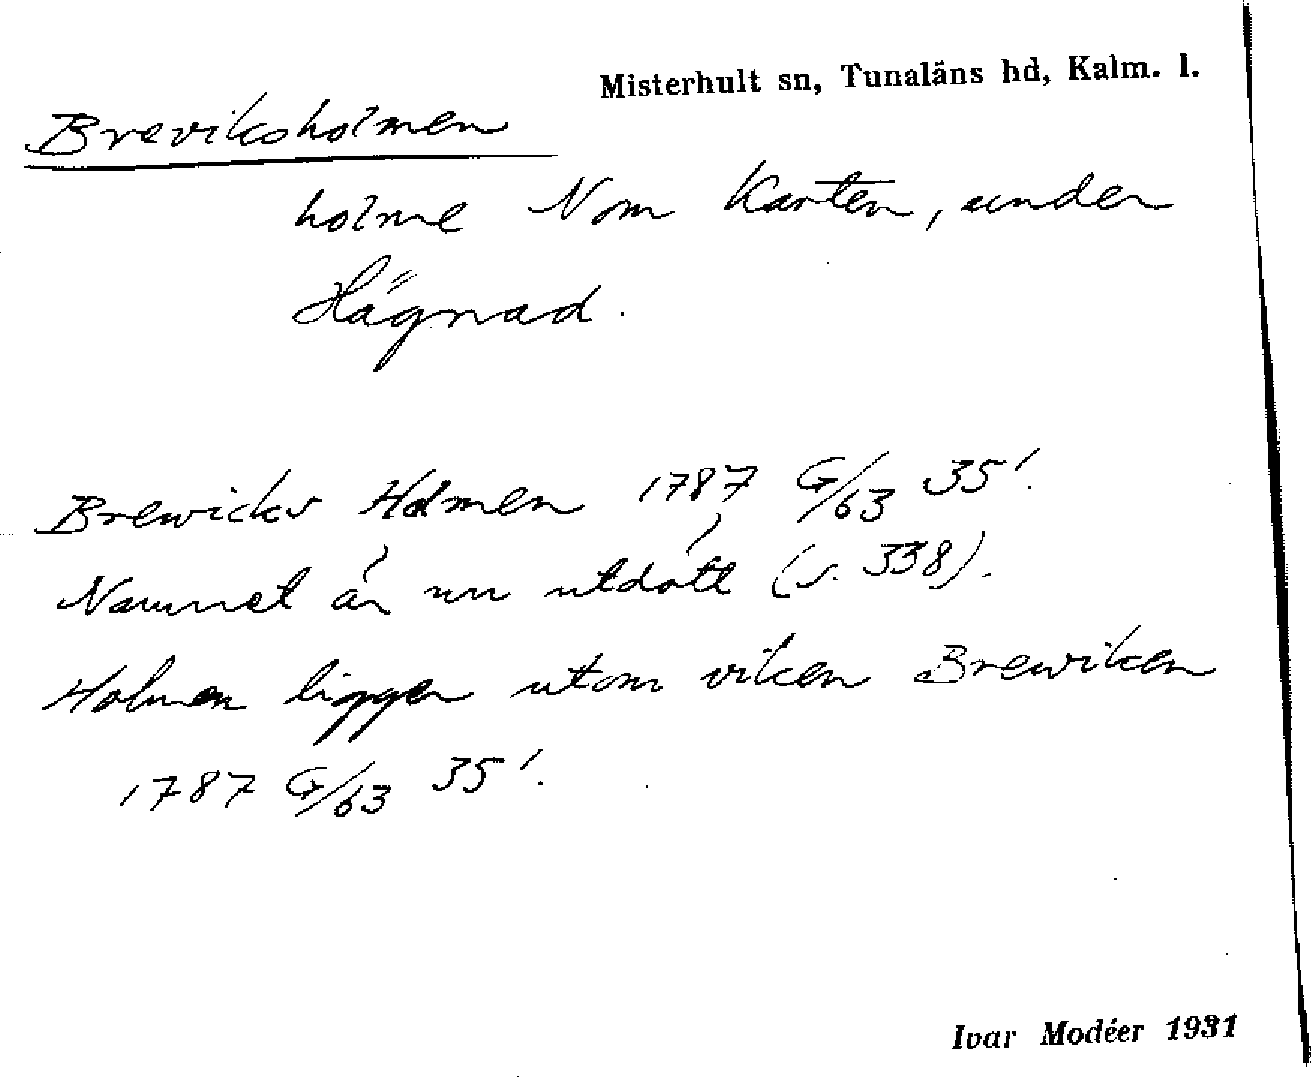 Misterhult sn, Tunaläns hd, Kalm. l.
Breviksholmen
holme N om Karten, under
Hägnad.
Brewicks Holmen 1787 G/63 35'.
Namnet är nu utdött (s. 338).
Holmen ligger utom viken Brewiken
1787 G/63 35'.
Ivar Modéer 1931